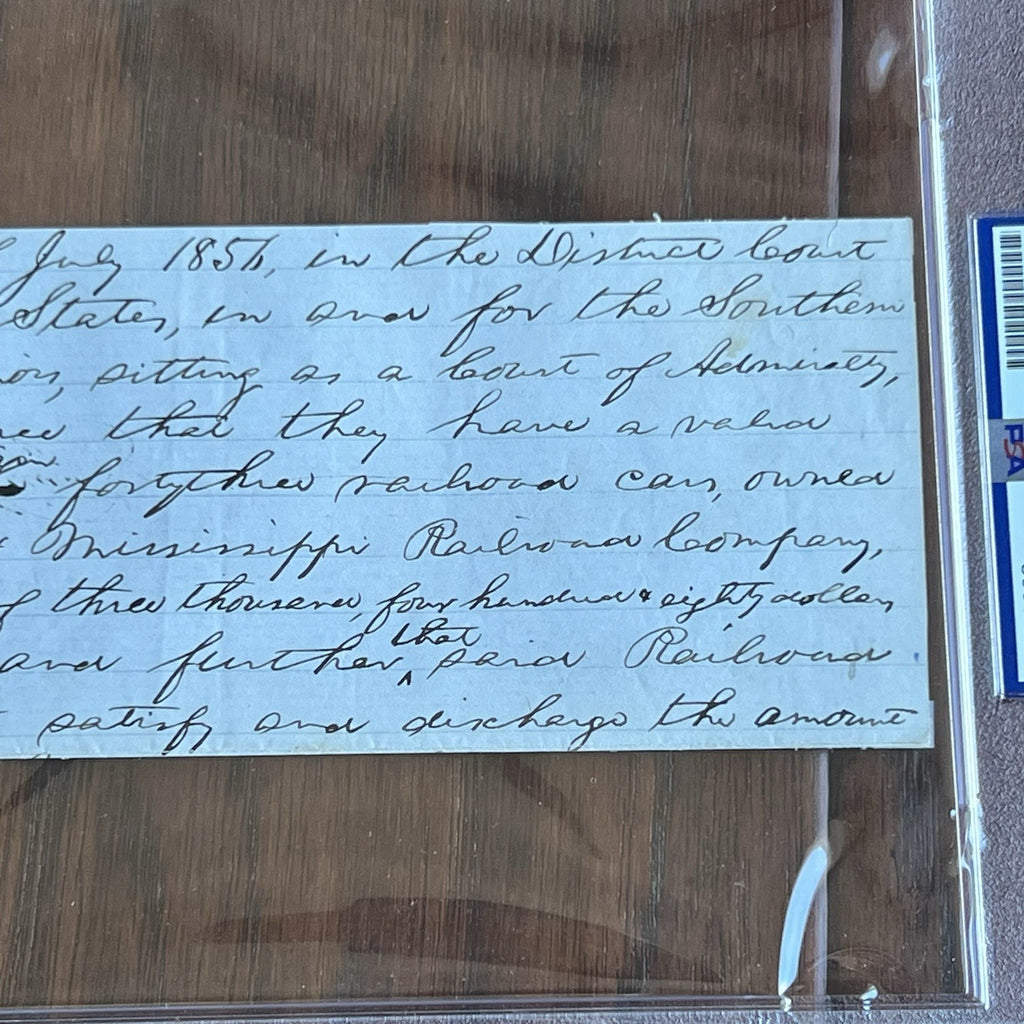 July 1856, in the District Court
States, in and for the Southern
sitting as a Court of Admiralty,
that they have a valid
forty three railroad cars, owned
Mississippi Railroad Company,
of three thousand, four hundred & eighty dollars
that
and further, ^ said Railroad
satisfy and discharge the amount
PSA